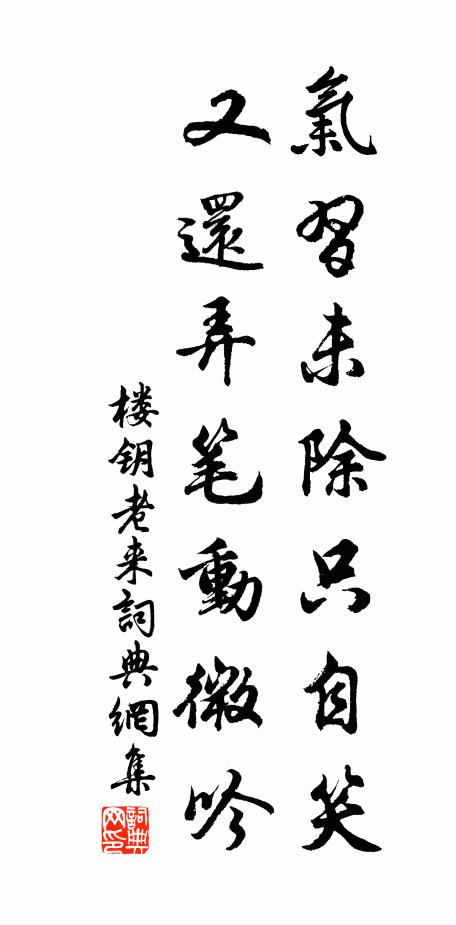 氣習未除只自笑
又還弄笔動微吟
楼钥老来詞典網集
詞典网印